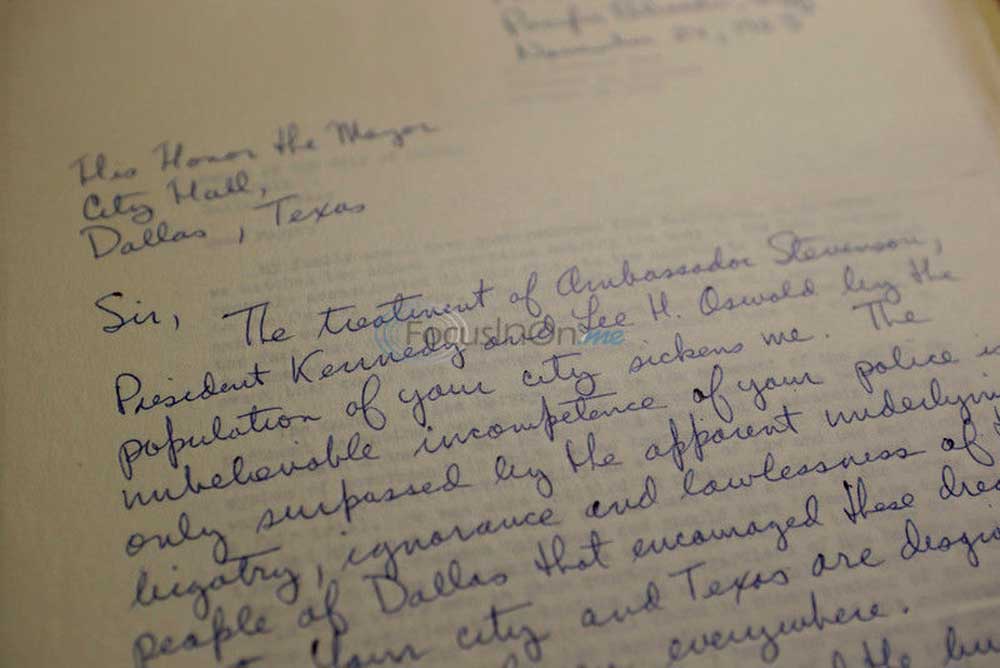 His Honor the Mayor
City Hall,
Dallas, Texas
Sir, The treatment of Ambassador Stevenson,
President Kennedy and Lee H. Oswald by the
FocusInOn.me
population of your city sickens me. The
unbelievable incompetence of your police is
only surpassed by the apparent
bigotry, ignorance and lawlessness of
people of Dallas that encouraged these
Your city and Texas are
everywhere.